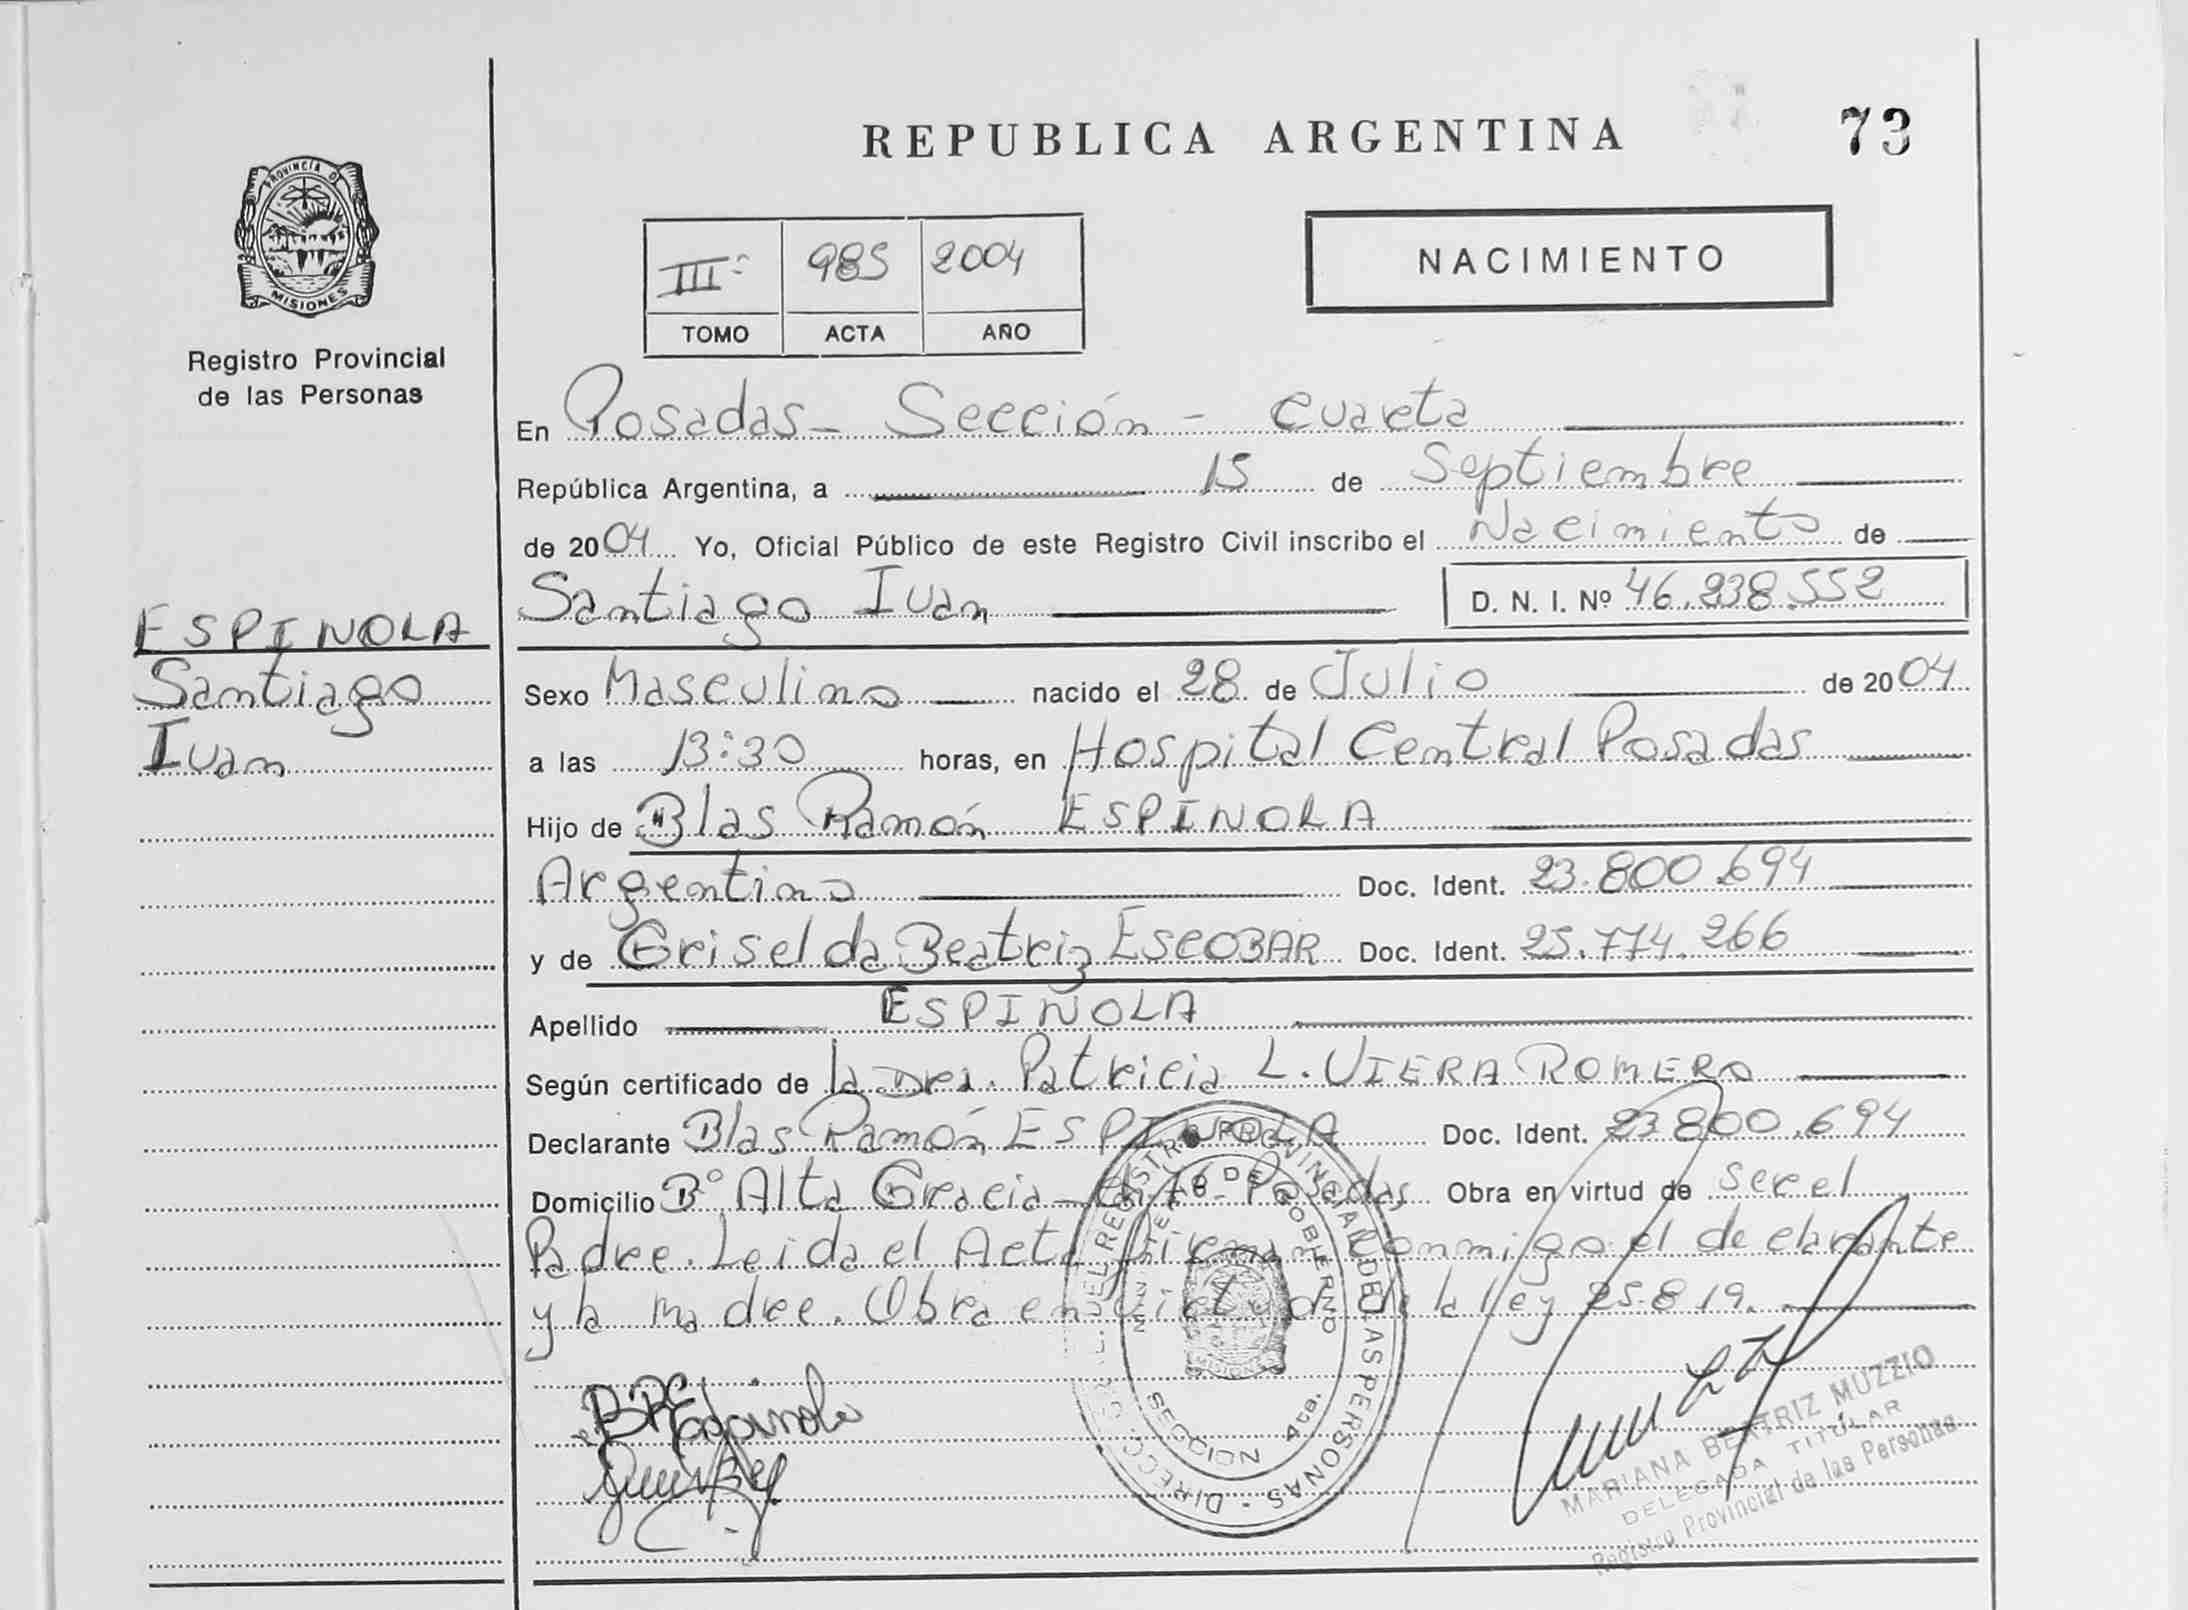 REPUBLICA ARGENTINA
73
PROVINCIA DE
MISIONES
Registro Provincial
de las Personas
III 985 2004
TOMO ACTA AÑO
NACIMIENTO
En Posadas - Sección - Cuarta
República Argentina, a 15 de Septiembre
de 2004 Yo, Oficial Público de este Registro Civil inscribo el Nacimiento de
Santiago Ivan
D. N. I. Nº 46.238.552
ESPINOLA
Santiago
Ivan
Sexo Masculino nacido el 28 de Julio de 2004
a las 13:30 horas, en Hospital Central Posadas
Hijo de Blas Ramón ESPINOLA
Argentino Doc. Ident. 23.800.694
y de Griselda Beatriz ESCOBAR Doc. Ident. 25.774.266
Apellido ESPINOLA
Según certificado de la Dra. Patricia L. VIERA ROMERO
Declarante Blas Ramón ESPINOLA Doc. Ident. 23.800.694
Domicilio Bº Alta Gracia - Posadas Obra en virtud de ser el
Padre. Leida el Acta firman conmigo el declarante
y la madre. Obra en virtud de la ley 25.819.
DIRECC. GRAL. DEL REGISTRO PROVINCIAL DE LAS PERSONAS
MINISTERIO DE GOBIERNO
SECCION 4ta.
MISIONES
MARIANA BEATRIZ MUZZIO
DELEGADA TITULAR
Registro Provincial de las Personas